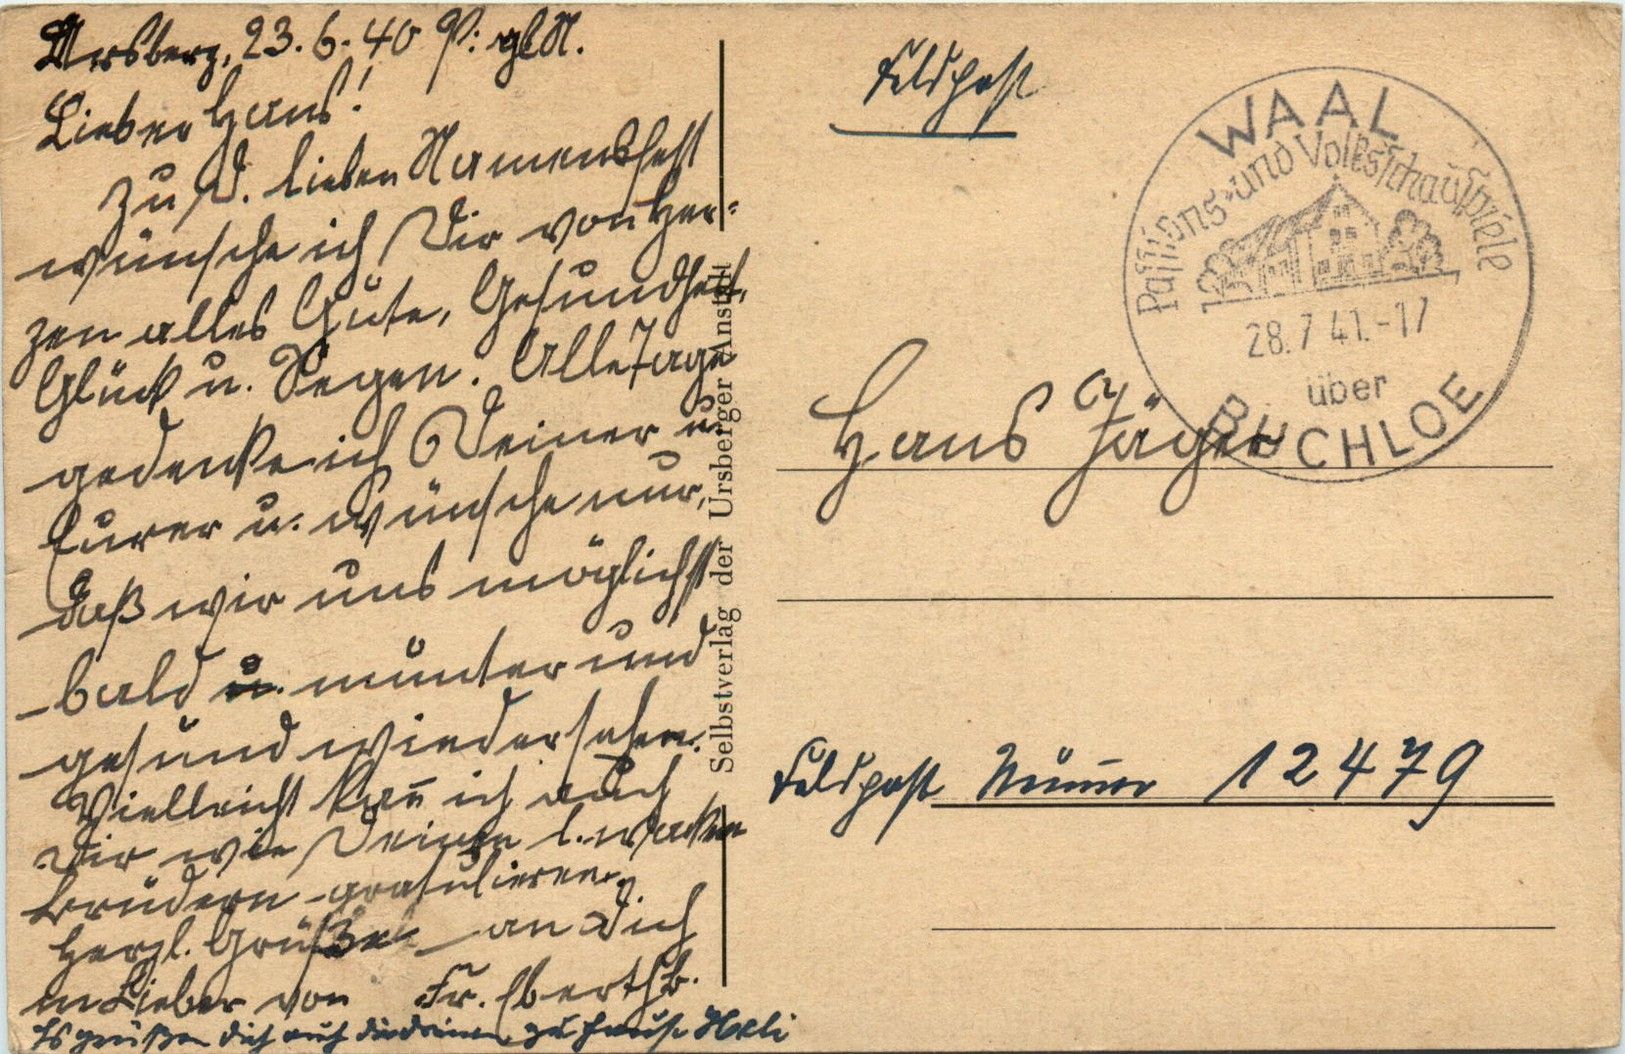 Ursberg, 23.6.40 P: glK.
Lieber Hans!
Zu D. lieben Namensfest
wünsche ich Dir von Her-
zen alles Gute, Gesundheit,
Glück u. Segen. Alle Tage
gedenke ich Deiner u.
Eurer u. wünsche nur,
daß wir uns möglichst
bald u. munter und
gesund wiedersehen.
Vielleicht kan̄ ich auch
Dir wie Deinen l. wackern
Brüdern gratulieren.
Herzl. Grüße an Dich
m Lieber von Fr.
Es grüßen dich auch die deinen zu hause
Selbstverlag der Ursberger Anstalt
Feldpost
WAAL
Passions- und Volksschauspiele
28.7 41.-17
über
BUCHLOE
Hans Jäger
Feldpost Num̄er 12479